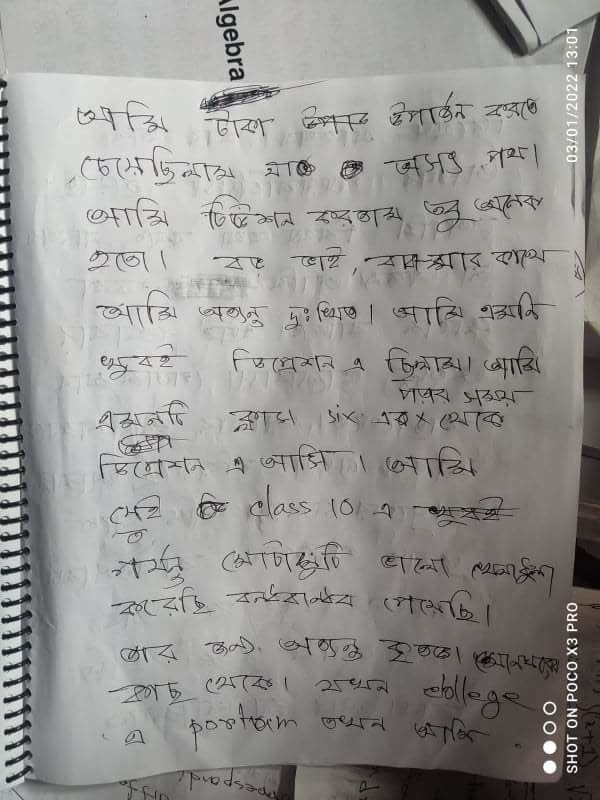 Algebra
আমি টাকা উপার্জন করতে
চেয়েছিলাম যা অসৎ পথে।
আমি টিউশন করতাম তবু অনেক
হতো। বড় ভাই, বাবা মার কাছে
আমি অত্যন্ত দুঃখিত। আমি এমনি
খুবই ডিপ্রেশন এ ছিলাম। আমি
পড়ার সময়
এমনটি ক্লাস six এর থেকে
ডিপ্রেশন এ আসি। আমি
সেই class 10 এ খুবই
পর্যন্ত মোটামুটি ভালো
করেছি বন্ধুবান্ধব পেয়েছি।
তার জন্য অত্যন্ত কৃতজ্ঞ।
কাছ থেকে। যখন college
এ portam তখন আমি
03/01/2022 13:01
SHOT ON POCO X3 PRO